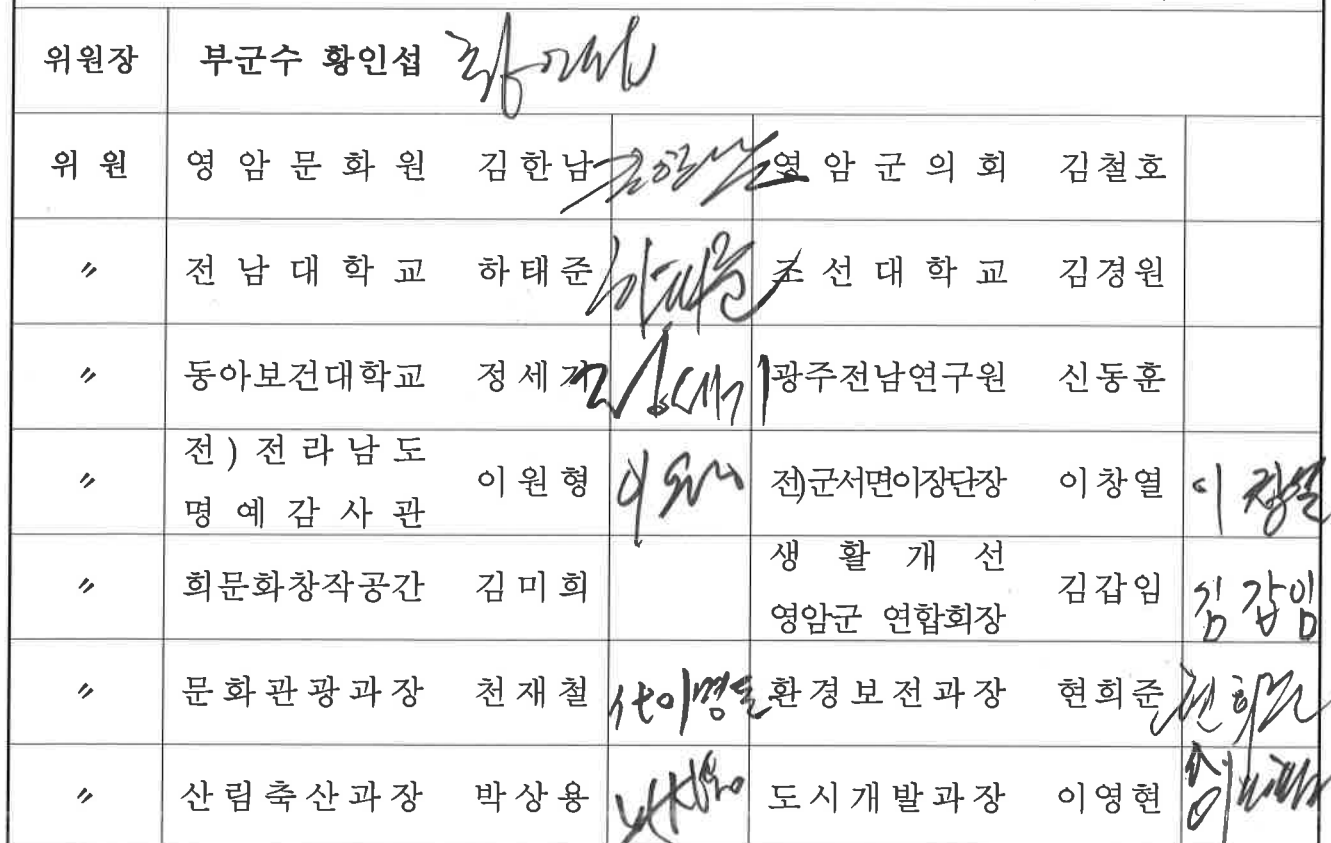 위원장 부군수 황인섭
위 원 영 암 문 화 원 김한남 김한남 영 암 군 의 회 김철호
〃 전 남 대 학 교 하태준 하태준 조 선 대 학 교 김경원
〃 동아보건대학교 정세기 광주전남연구원 신동훈
〃 전) 전 라 남 도
명 예 감 사 관 이원형 전)군서면이장단장 이창열 이창열
〃 희문화창작공간 김미희 생 활 개 선
영암군 연합회장 김갑임 김갑임
〃 문화관광과장 천재철 환경보전과장 현희준 현희준
〃 산림축산과장 박상용 도시개발과장 이영현